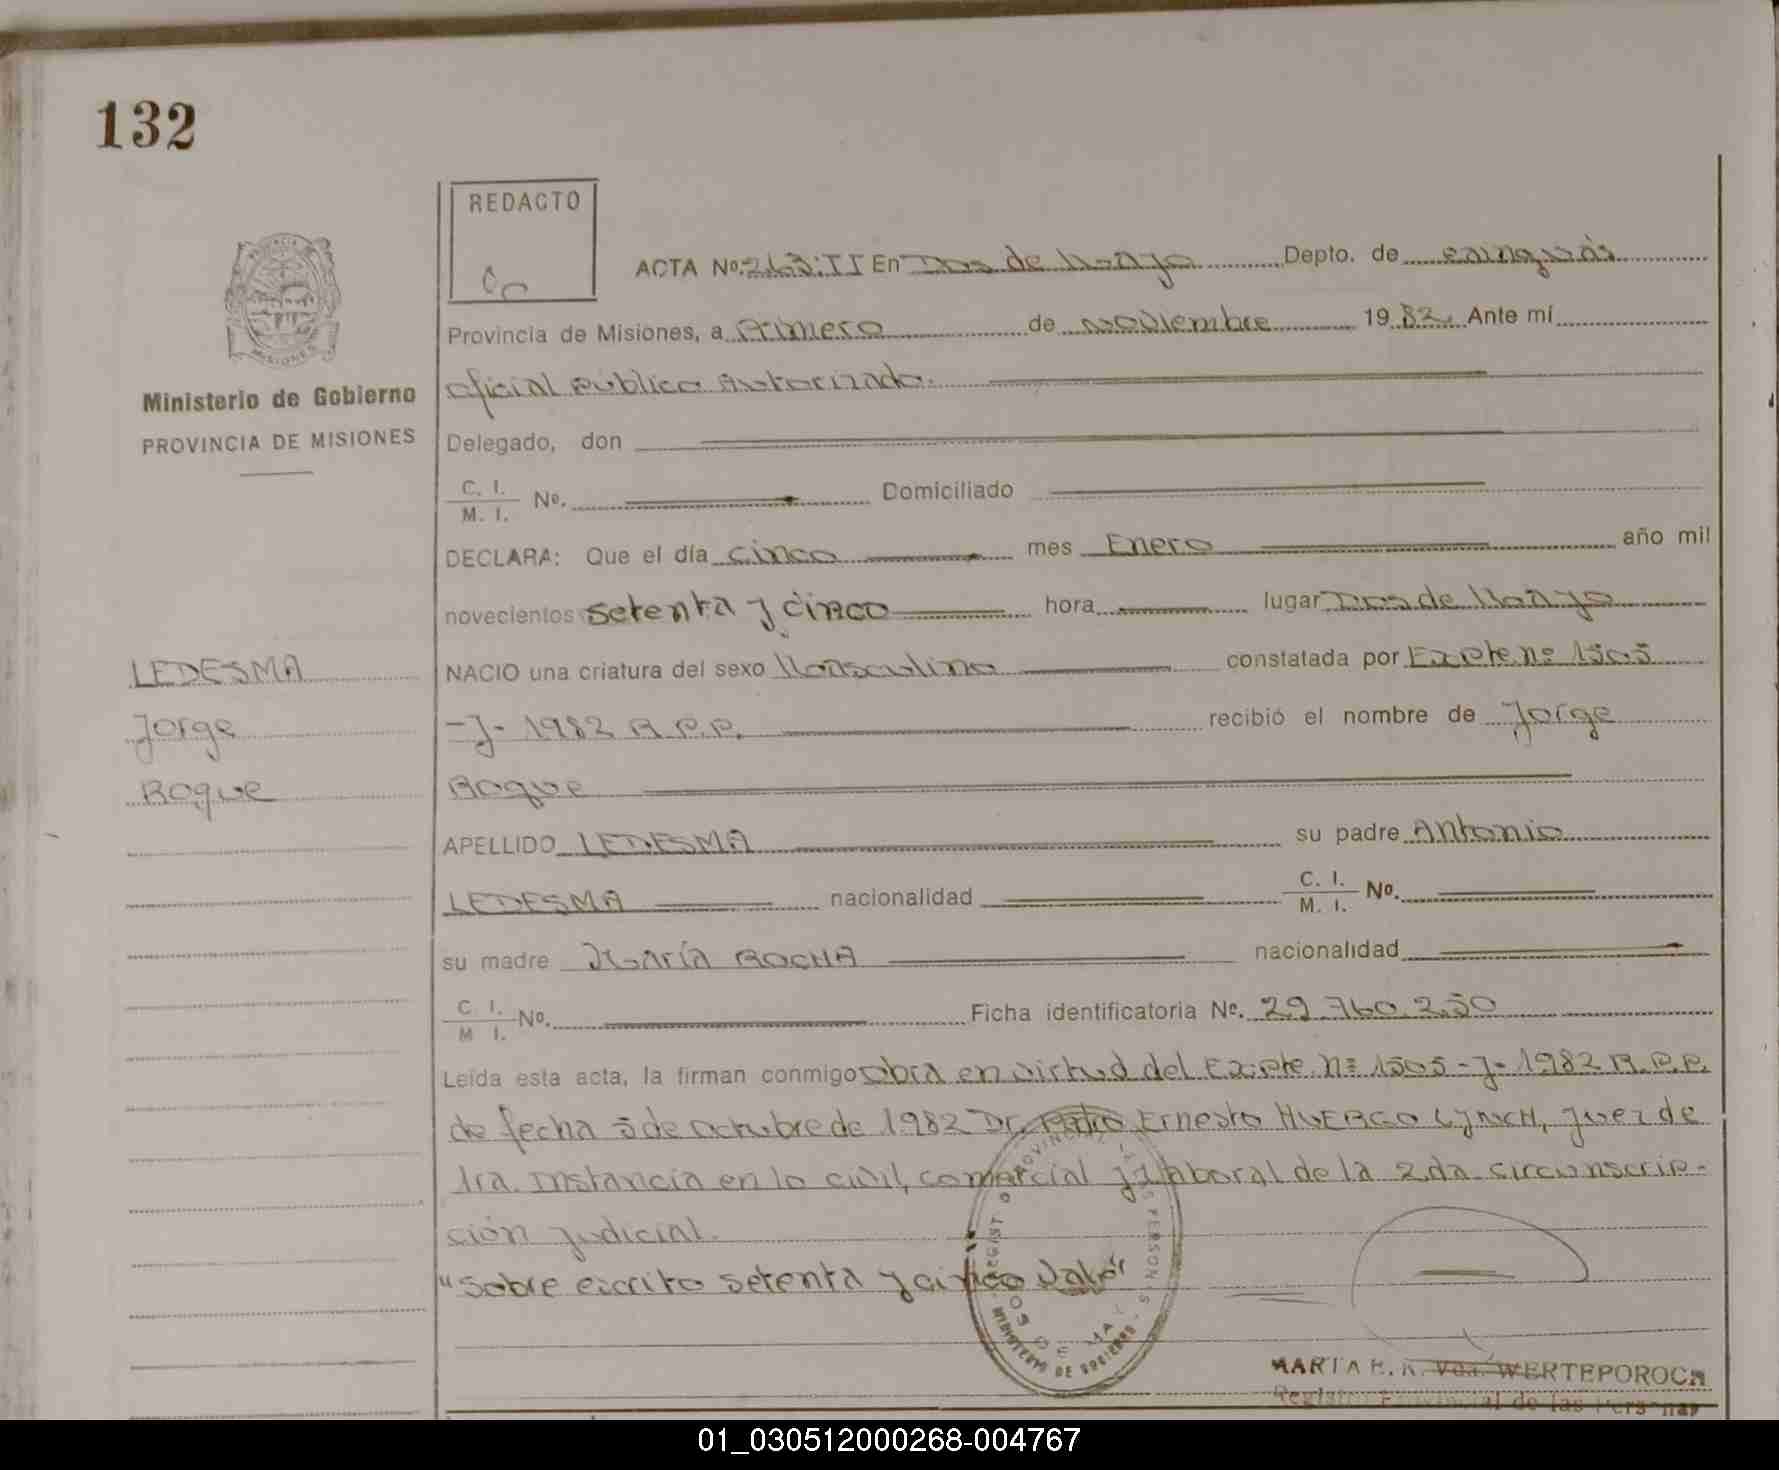 132
REDACTO
ACTA Nº. 263:II En Dos de Mayo Depto. de cainguás
Provincia de Misiones, a Primero de noviembre 1982. Ante mí
oficial público Autorizado.
Ministerio de Gobierno
PROVINCIA DE MISIONES
Delegado, don
C. I.
M. I. Nº. Domiciliado
DECLARA: Que el día cinco mes Enero año mil
novecientos setenta y cinco hora lugar Dos de Mayo
LEDESMA NACIO una criatura del sexo Masculino constatada por Expte. nº 1505
Jorge -J- 1982 R.P.P. recibió el nombre de Jorge
Roque Roque
APELLIDO LEDESMA su padre Antonio
LEDESMA nacionalidad C. I. M. I. Nº.
su madre María ROCHA nacionalidad
C. I.
M I. Nº. Ficha identificatoria Nº. 29.760.250
Leída esta acta, la firman conmigo obra en virtud del Expte. nº 1505-J-1982 R.P.P.
de fecha 5 de octubre de 1982 Dr. Pedro Ernesto HUERGO LYNCH, juez de
1ra. Instancia en lo civil, comercial y laboral de la 2da. circunscrip-
ción judicial.
"Sobre escrito setenta y cinco Vale"
MINISTERIO DE GOBIERNO
MARIA H. K. Vda. WERTEPOROCH
Registro Provincial de las Personas
01_030512000268-004767